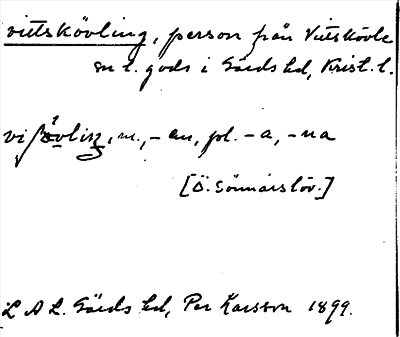 vittskövling, person från Vittskövle
sn o. gods i Gärds hd, Krist. l.
vi , m., -en, pl. -a, -na
[Ö. Sönnarslöv.]
L A L. Gärds hd, Per Karsson 1899.